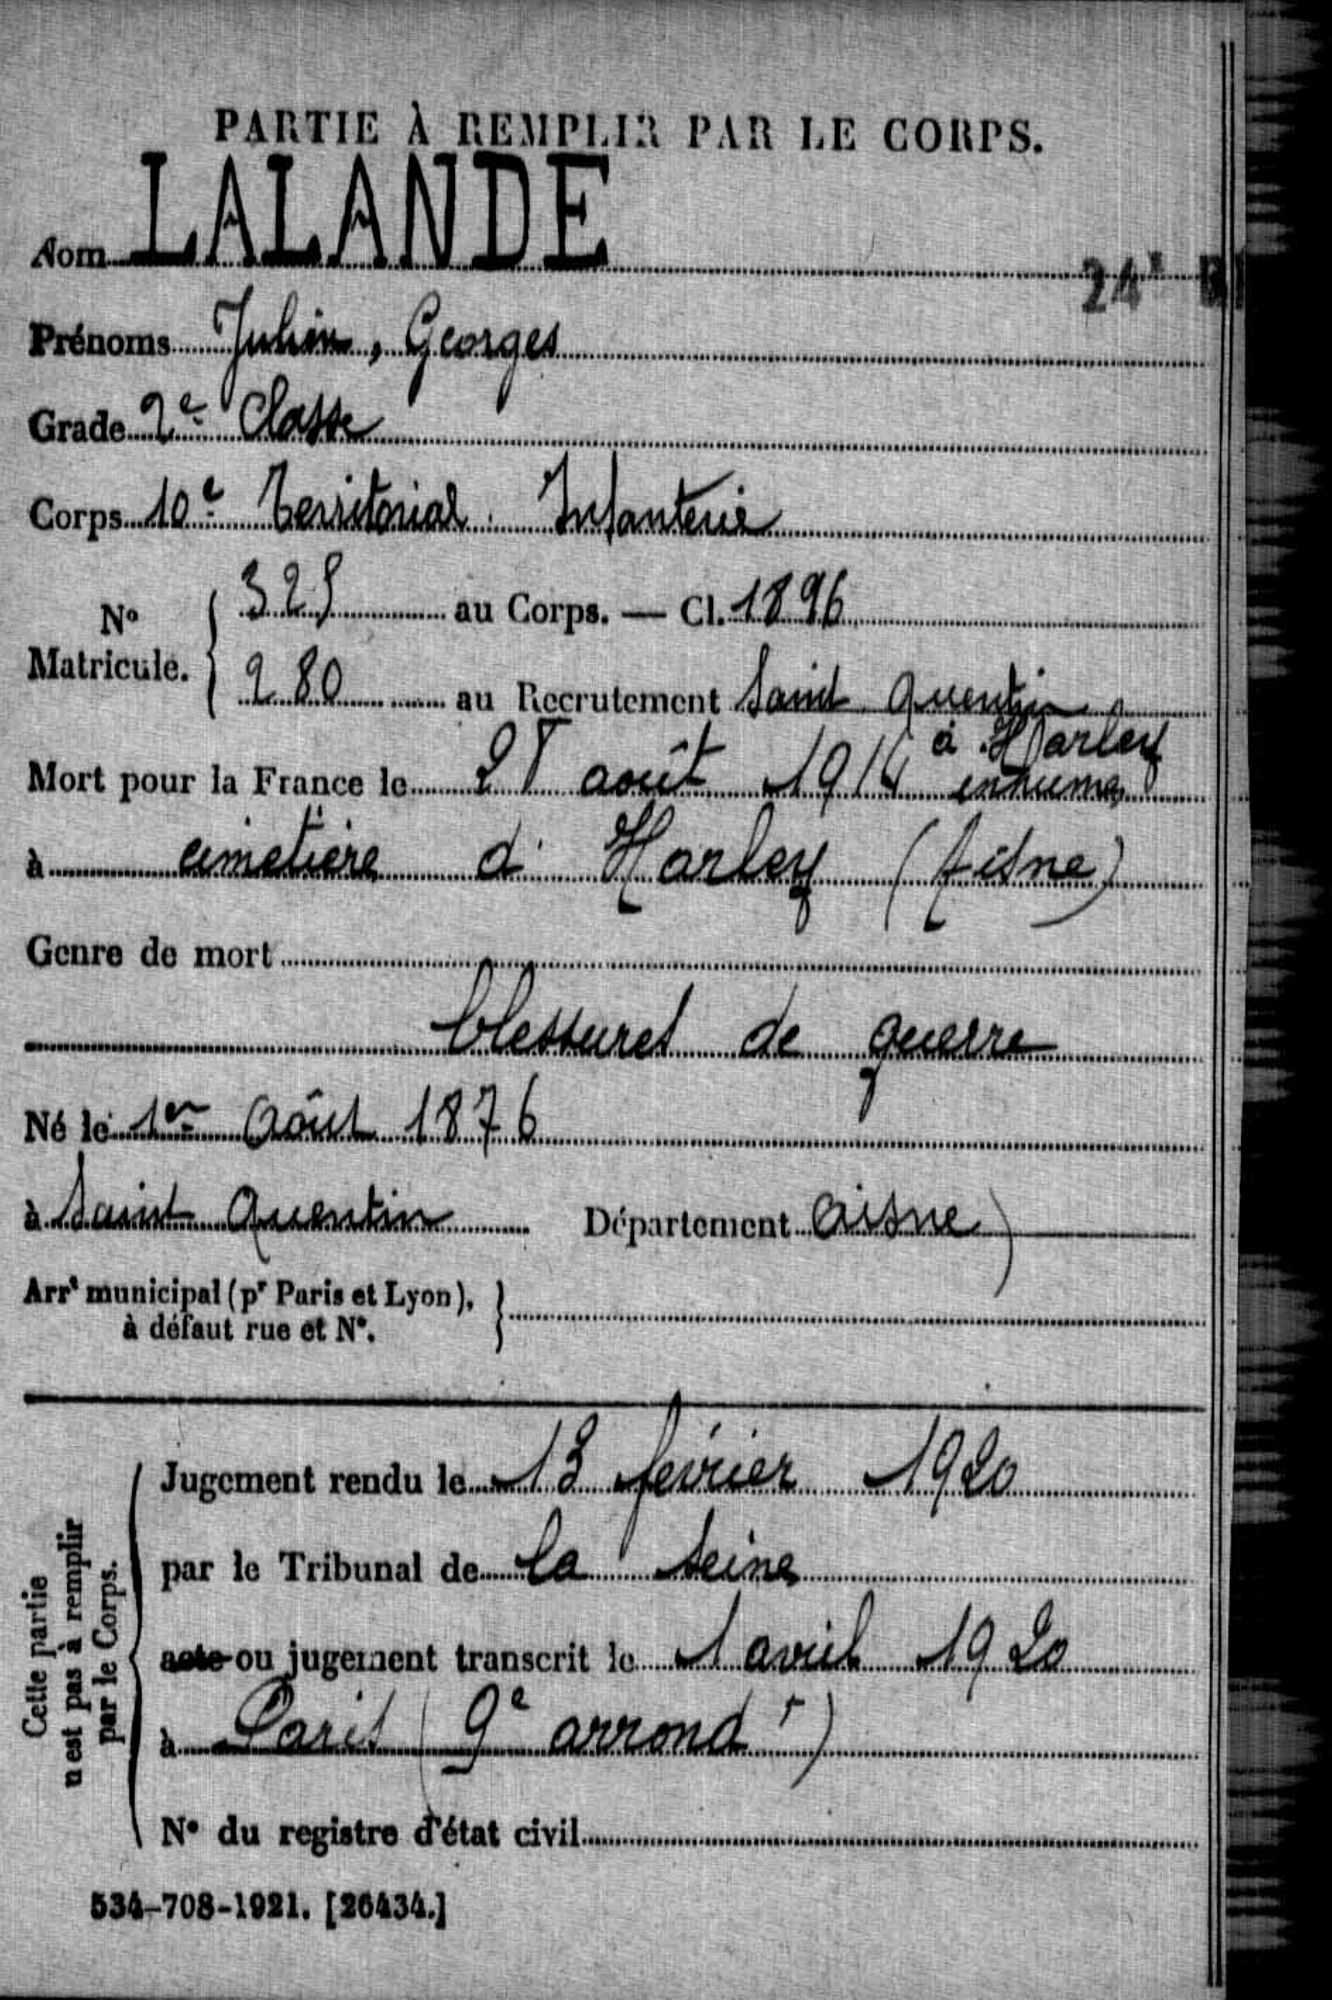 PARTIE À REMPLIR PAR LE CORPS.
Nom LALANDE
24e
Prénoms Julien, Georges
Grade 2e Classe
Corps 10e Territorial Infanterie
No Matricule. 325 au Corps. — Cl. 1896
280 au Recrutement Saint Quentin
à Harley
Mort pour la France le 28 août 1914 inhumé
à cimetière d' Harley (Aisne)
Genre de mort
blessures de guerre
Né le 1er Août 1876
à Saint Quentin Département Aisne)
Arrt municipal (pr Paris et Lyon),
à défaut rue et No.
Cette partie
n'est pas à remplir
par le Corps.
Jugement rendu le 13 février 1920
par le Tribunal de la Seine
acte ou jugement transcrit le 1 avril 1920
à Paris (9e arrondt)
No du registre d'état civil
534-708-1921. [26434.]